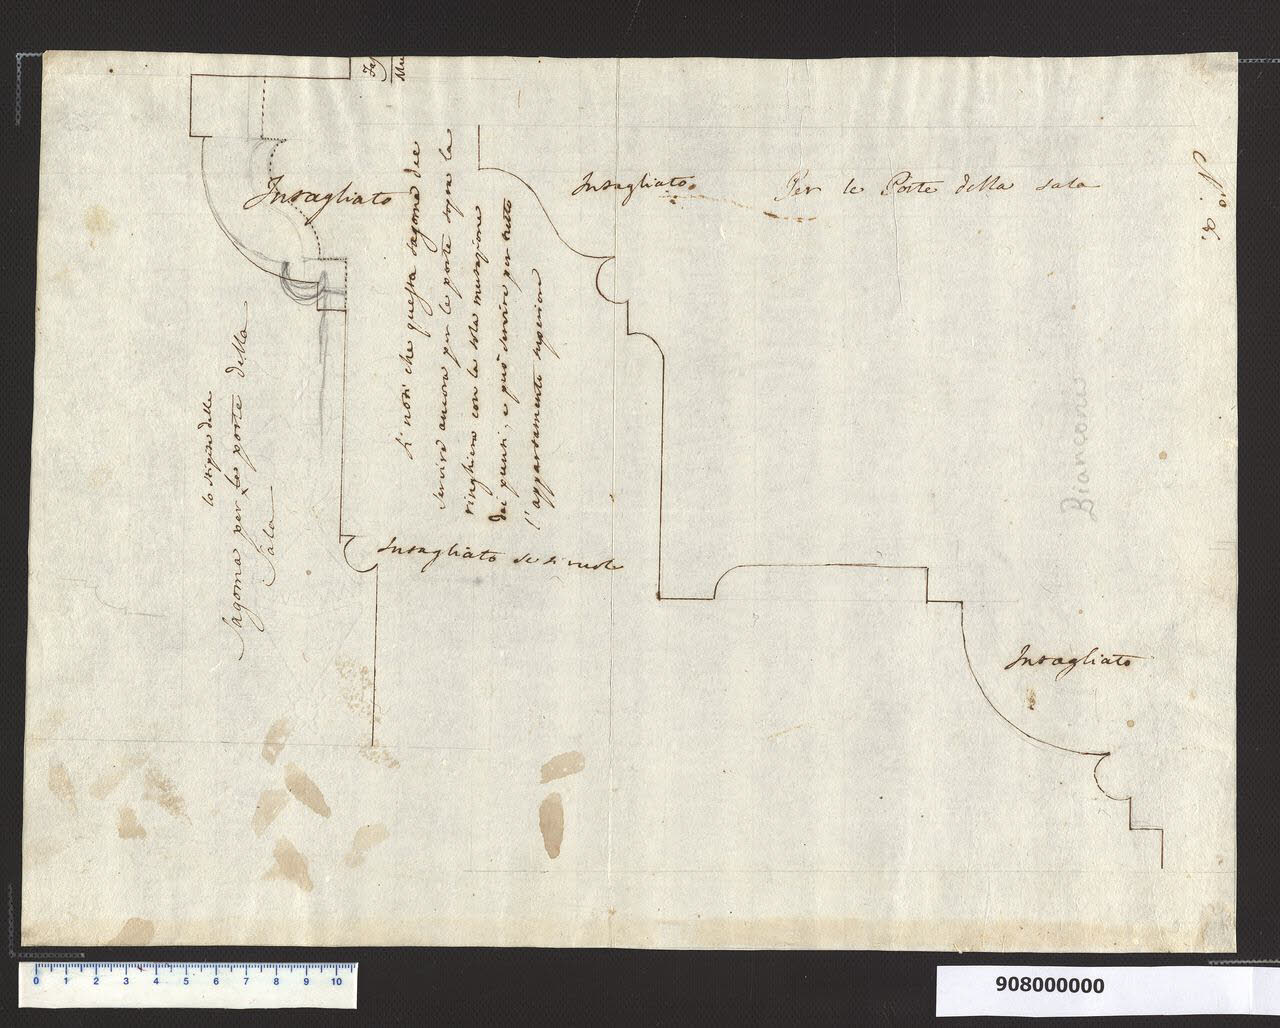 Intagliato
Intagliato
Per le Porte della sala
N.o
Si noti che questa sagoma dee
servire ancora per le porte sopra la
ringhiera con la sola mutazione
dei punti, e può servire per tutto
l'appartamento superiore
lo stipite delle
Sagoma per le porte della
Sala
Intagliato se si vuole
Intagliato
Biancone
0 1 2 3 4 5 6 7 8 9 10
908000000